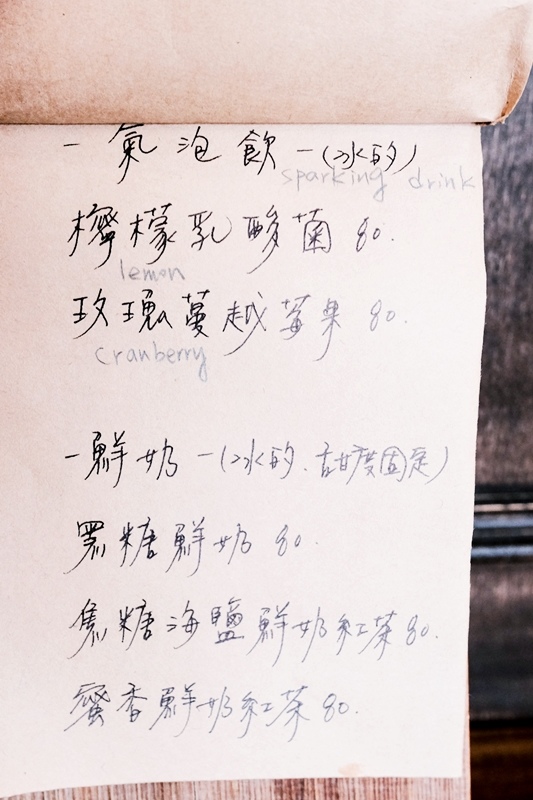 －氣泡飲－(冰的)
sparking drink
檸檬乳酸菌 80.
lemon
玫瑰蔓越莓果 80.
cranberry
－鮮奶－(冰的.甜度固定)
黑糖鮮奶 80.
焦糖海鹽鮮奶紅茶 80.
蜜香鮮奶紅茶 80.